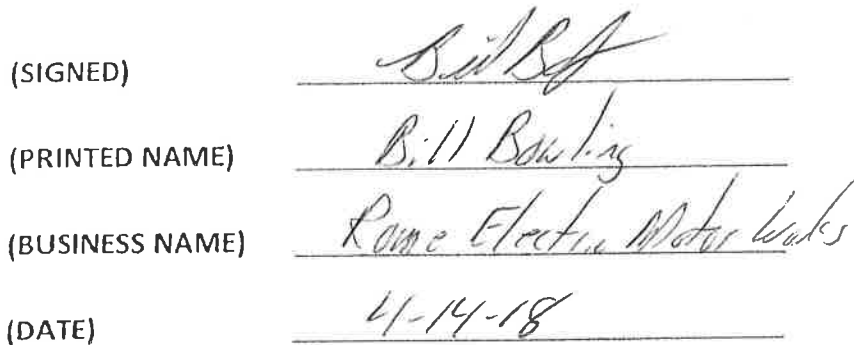 (SIGNED) Bill B
(PRINTED NAME) Bill Bowling
(BUSINESS NAME) Rome Electric Motor Works
(DATE) 4-14-18